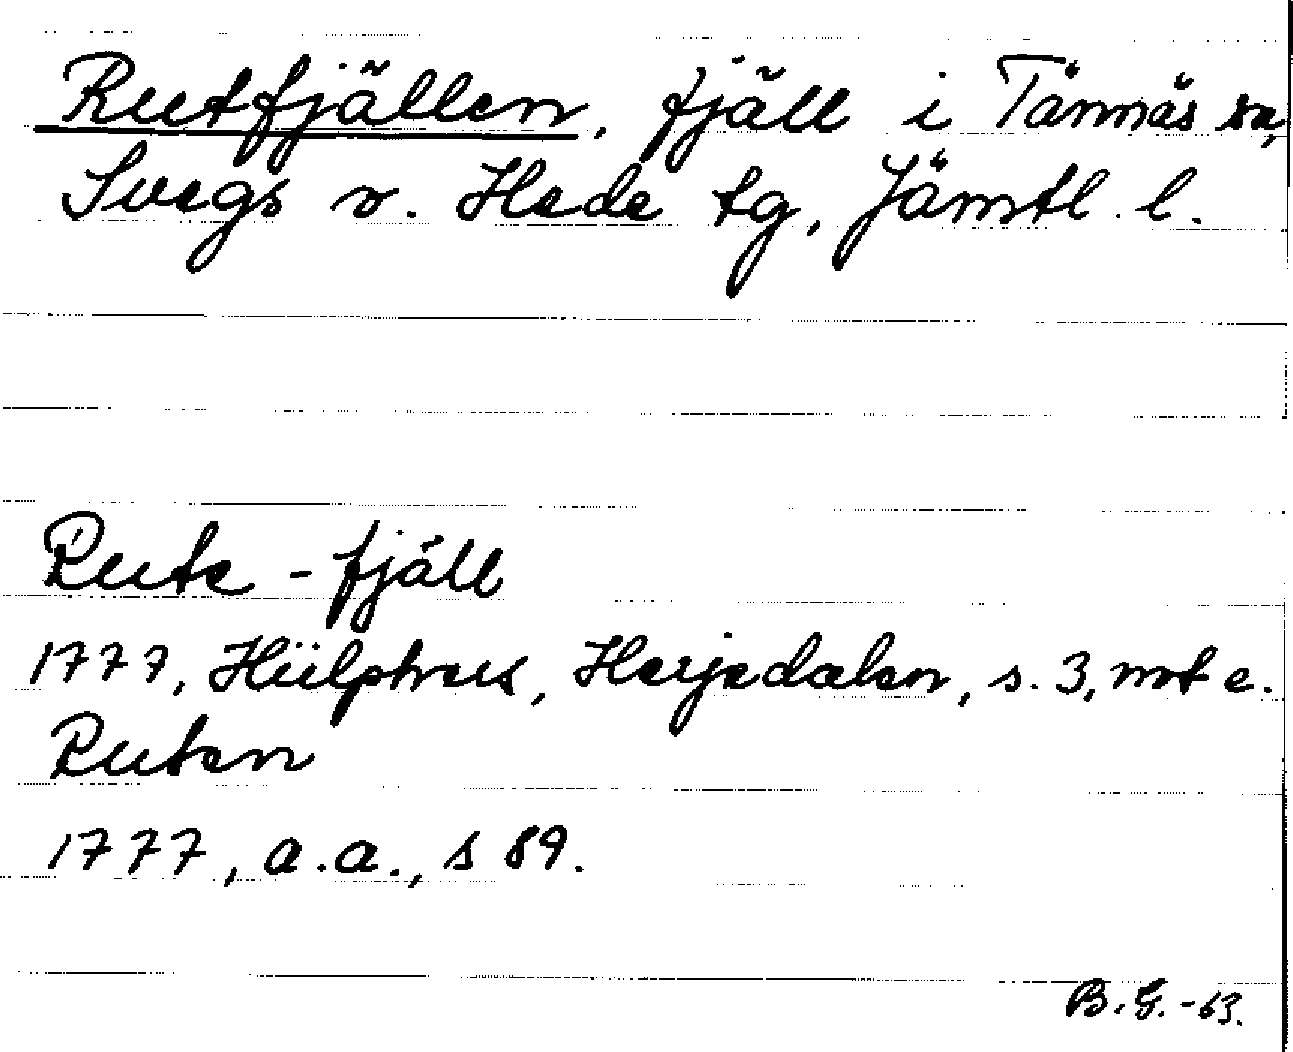 Rutfjällen, fjäll i Tännäs sn,
Svegs o. Hede tg, Jämtl. l.
Rute - fjäll
1777, Hülphers, Herjedalen, s. 3, not e.
Ruten
1777, a.a., s 89.
B.G. -63.